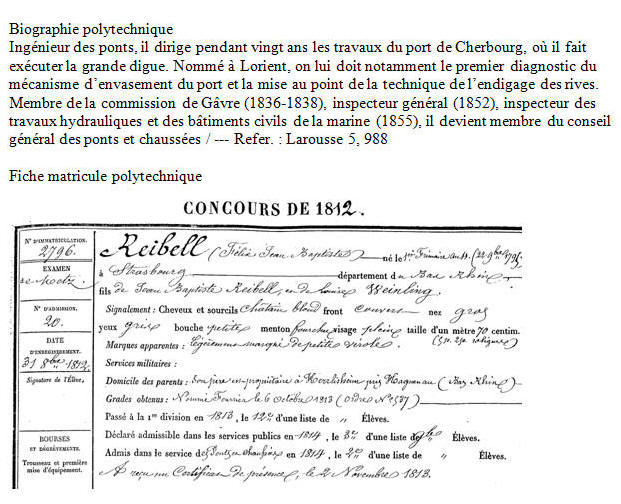 Biographie polytechnique
Ingénieur des ponts, il dirige pendant vingt ans les travaux du port de Cherbourg, où il fait
exécuter la grande digue. Nommé à Lorient, on lui doit notamment le premier diagnostic du
mécanisme d'envasement du port et la mise au point de la technique de l'endigage des rives.
Membre de la commission de Gâvre (1836-1838), inspecteur général (1852), inspecteur des
travaux hydrauliques et des bâtiments civils de la marine (1855), il devient membre du conseil
général des ponts et chaussées / --- Refer. : Larousse 5, 988
Fiche matricule polytechnique
CONCOURS DE 1812.
N° D'IMMATRICULATION.
2796.
EXAMEN
de Metz.
N° D'ADMISSION.
20.
DATE
D'ENREGISTREMENT.
31 8bre 1812
Signature de l'Élève,
BOURSES
ET DÉGRÈVEMENTS.
Trousseau et première
mise d'équipement.
Reibell (Félix Jean Baptiste) né le 1er Frimaire an 4. (22 9bre 1795)
à Strasbourg département du Bas Rhin
fils de Jean Baptiste Reibell, et de Louise Weinling.
Signalement : Cheveux et sourcils chatain blond front couvert nez gros
yeux gris bouche petite menton fourchu visage plein taille d'un mètre 70 centim.
Marques apparentes : légèrement marqué de petite vérole.
Services militaires :
Domicile des parents : Son père est propriétaire à Herrlisheim près Haguenau (Bas Rhin)
Grades obtenus : Nommé Fourrier le 6 Octobre 1813 (ordre N° 537)
Passé à la 1re division en 1813, le 12e d'une liste de " Élèves.
Déclaré admissible dans les services publics en 1814, le 3e d'une liste de Élèves.
Admis dans le service des Ponts et Chaussées en 1814, le 2e d'une liste de " Élèves.
A reçu un Certificat de présence, le 2 Novembre 1813.